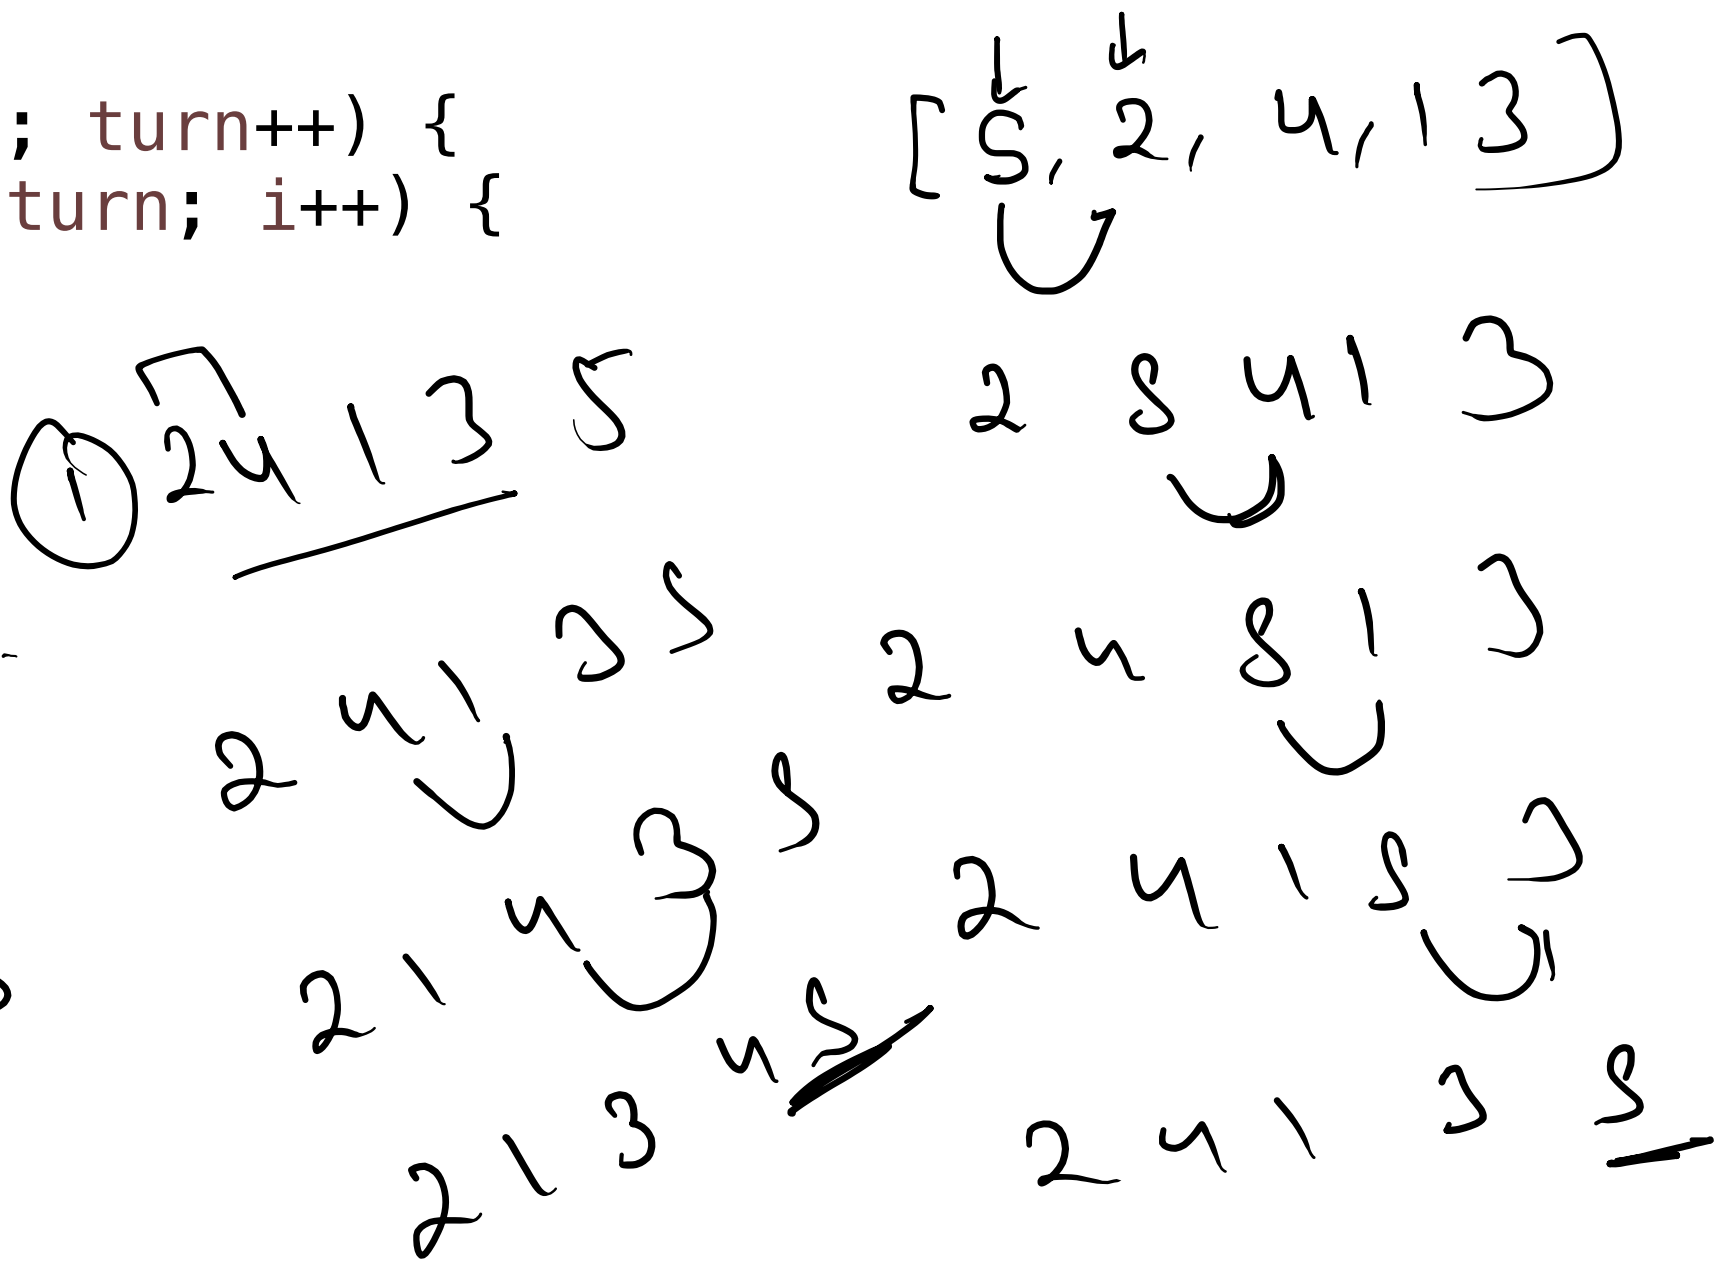 ; turn++) {
turn; i++) {
[5, 2, 4, 1 3]
2 5 4 1 3
2 4 5 1 3
2 4 1 5 3
2 4 1 3 5
1
2 4 1 3 5
2 4 1 3 5
2 1 4 3 5
2 1 3 4 5